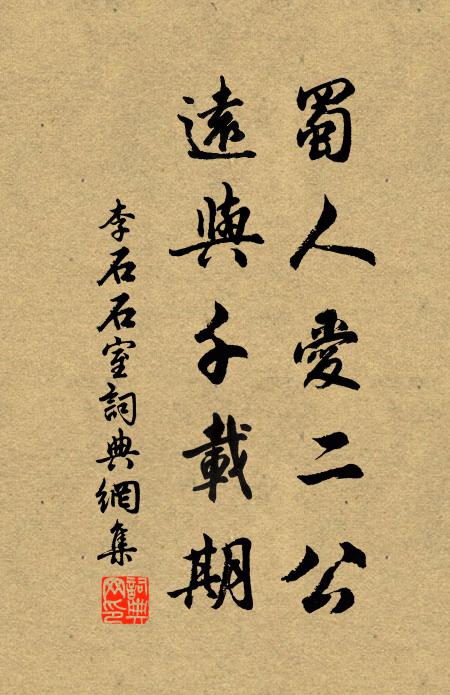 蜀人愛二公
遠與千載期
李石石室詞典網集
詞典網印